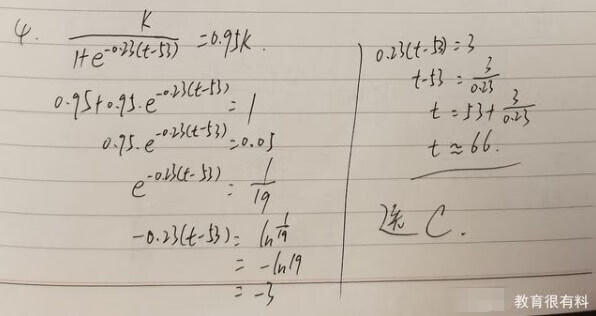 4. K/(1+e^{-0.23(t-53)}) = 0.95K.
0.95+0.95·e^{-0.23(t-53)} = 1
0.95·e^{-0.23(t-53)} = 0.05
e^{-0.23(t-53)} = 1/19
-0.23(t-53) = ln 1/19
= -ln19
= -3
0.23(t-53) = 3
t-53 = 3/0.23
t = 53 + 3/0.23
t ≈ 66.
选 C.
教育很有料